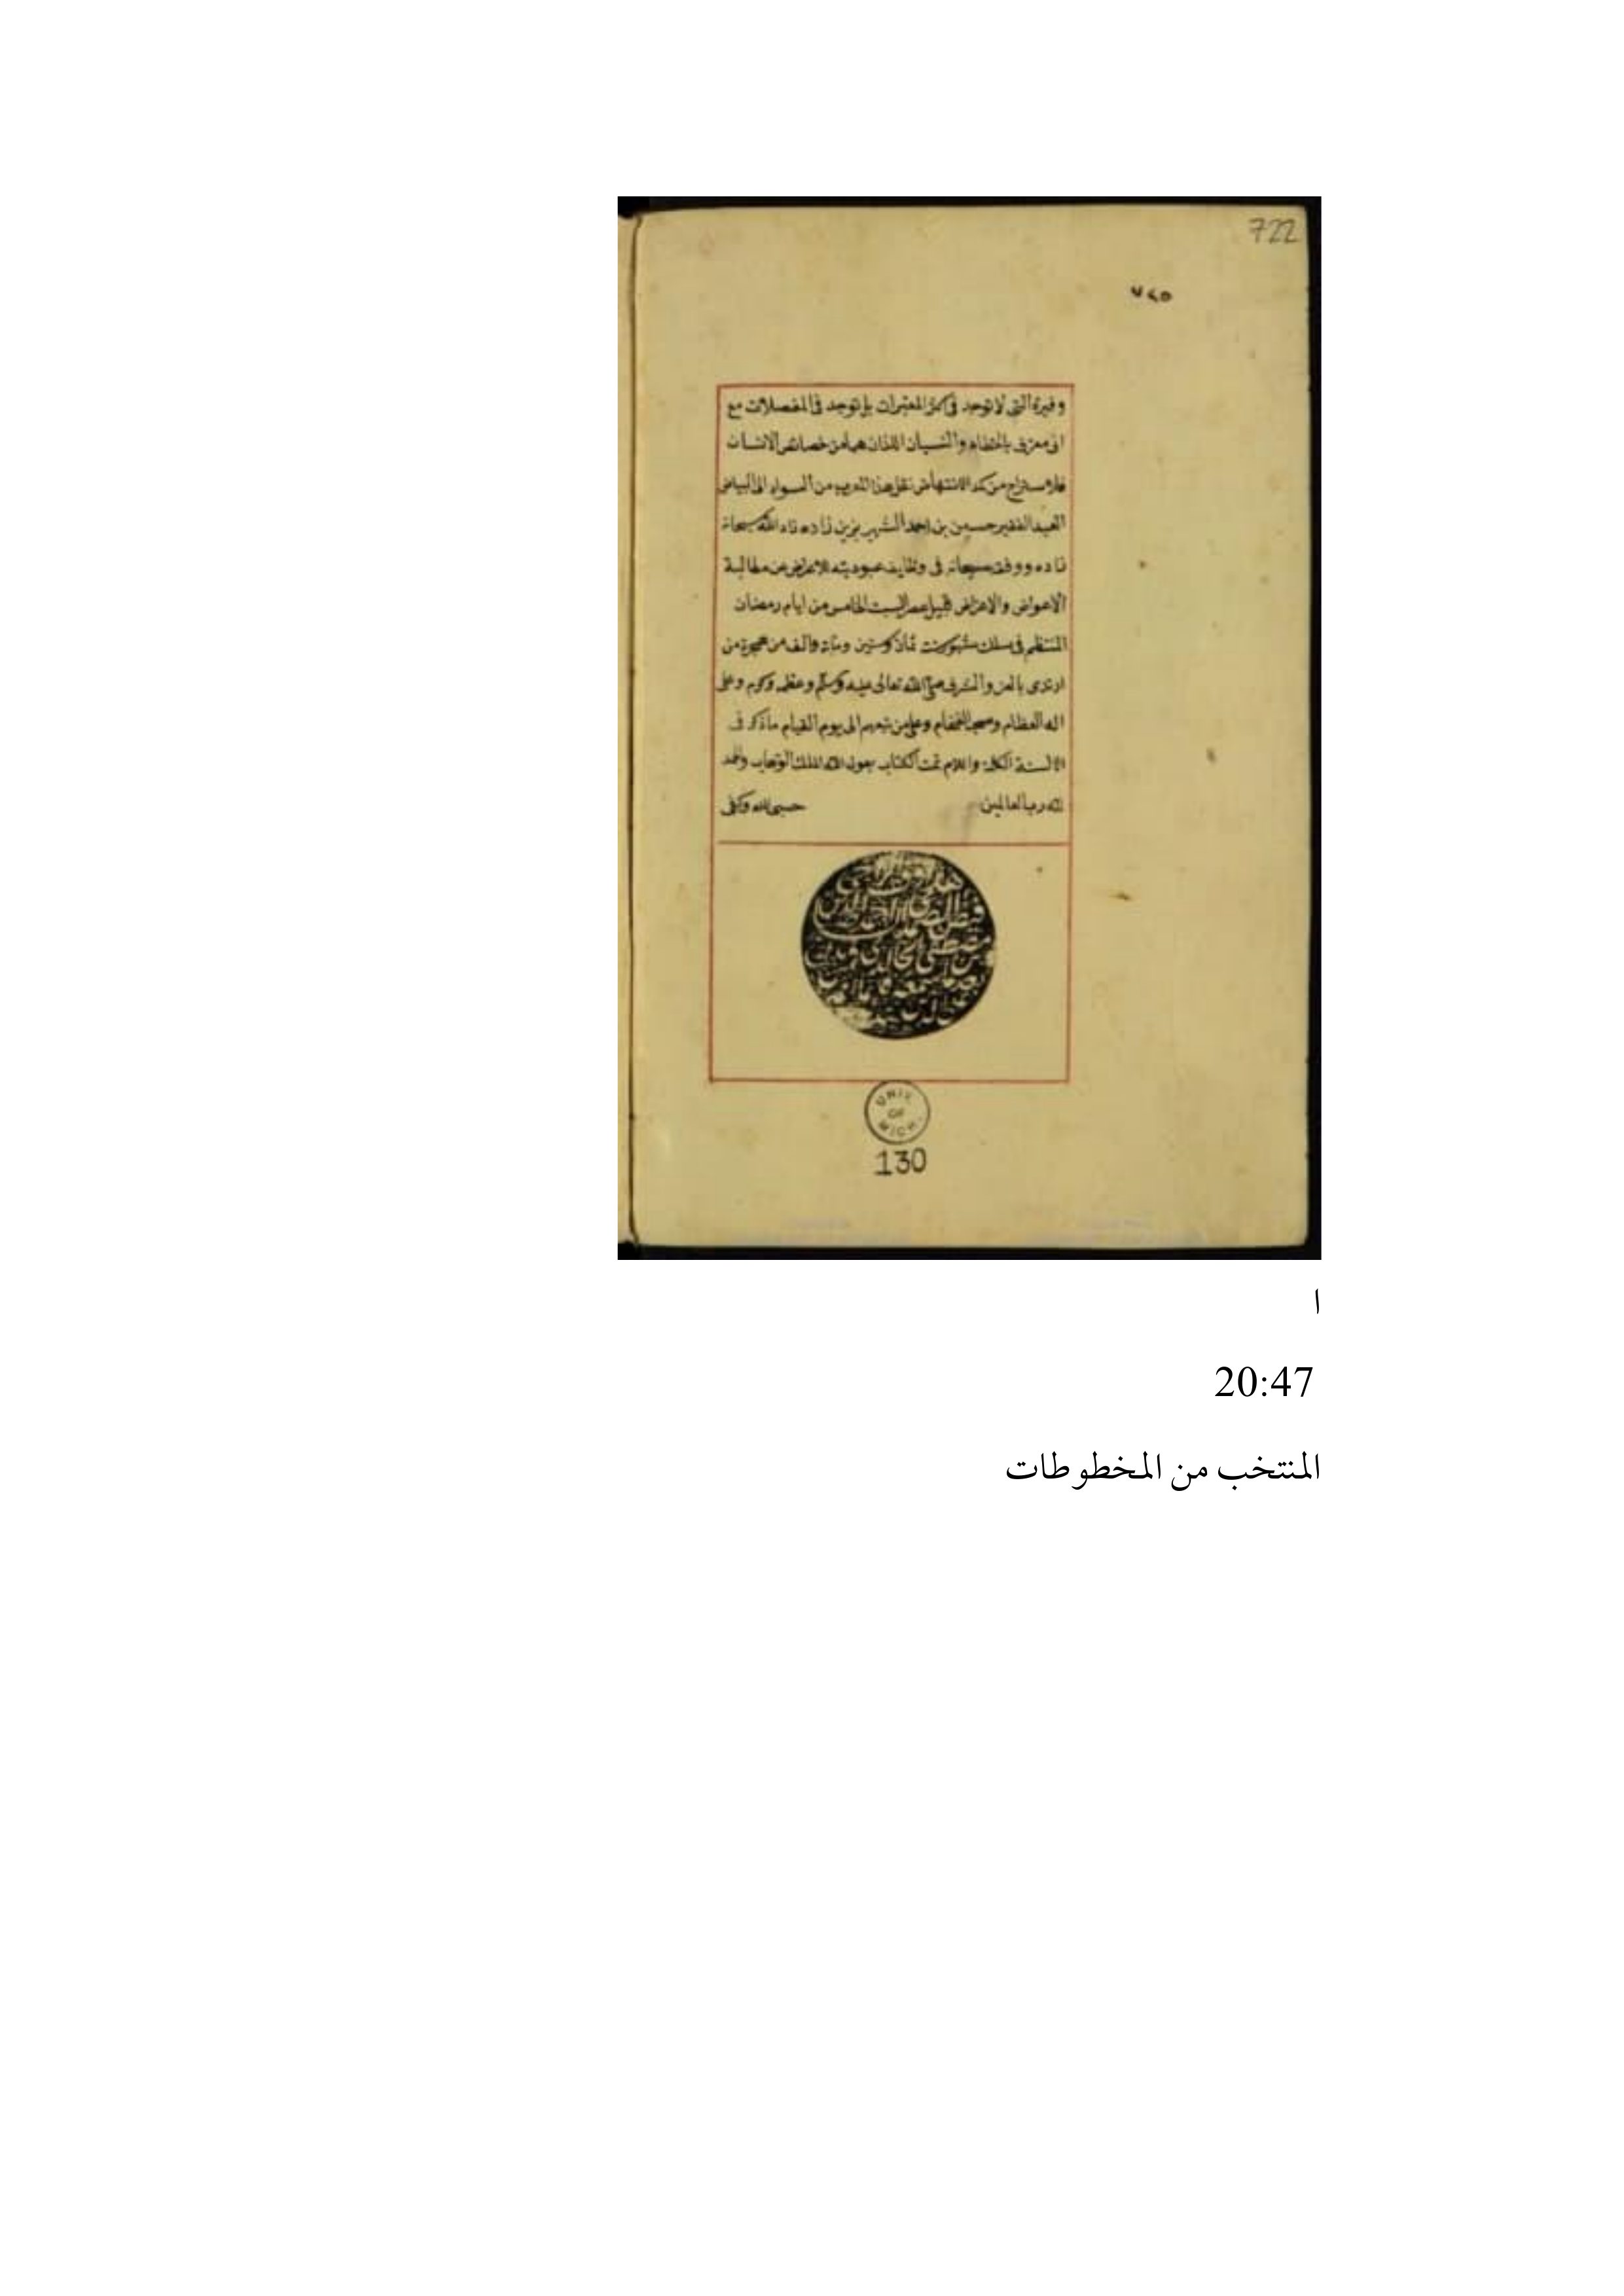 722
٧٢٥
وفيرة التي لا توجد في اكثر المعتبرات بل توجد في المفصلات مع
انى معترف بالخطاء والنسيان اللذان هما من خصائص الانسان
من كد الانتهاض نقل هذا من السواد الى البياض
العبد الفقير حسين بن احمد الشهير بزينى زاده زاد الله سبحانه
زاده ووفقه سبحانه فى وظايف عبوديته الاعراض عن مطالبة
الاعواض والاعراض قبيل عصر السبت الخامس من ايام رمضان
المنتظم فى سلك شهور سنة ثمان وستين ومائة والف من هجرة من
ارتدى بالعز والشرف صلى الله تعالى عليه وسلم وعظم وكرم وعلى
اله العظام وصحبه الفخام وعلى من تبعهم الى يوم القيام ما ذكر فى
الالسنة الكلام تمت الكتاب بعون الله الملك الوهاب والحمد
لله رب العالمين حسبى الله وكفى
UNIV.
OF
MICH.
130
ا
20:47
المنتخب من المخطوطات